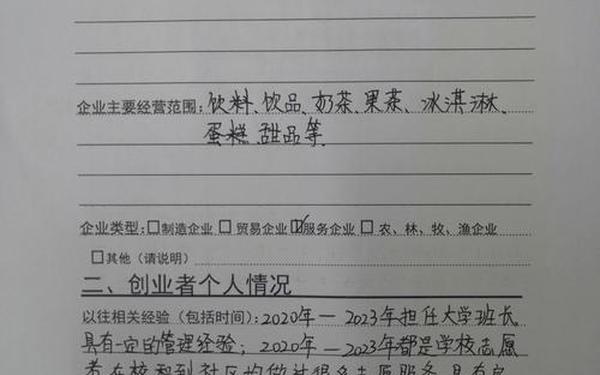 企业主要经营范围:饮料、饮品、奶茶、果茶、冰淇淋、
蛋糕、甜品等.
企业类型:□制造企业 □ 贸易企业 ☑服务企业 □ 农、林、牧、渔企业
□其他(请说明)
二、创业者个人情况
以往相关经验(包括时间):2020年—2023年担任大学班长,
具有一定的管理经验;2020年—2023年都是学校志愿
者,在校和到社区均做过很多志愿服务,具有